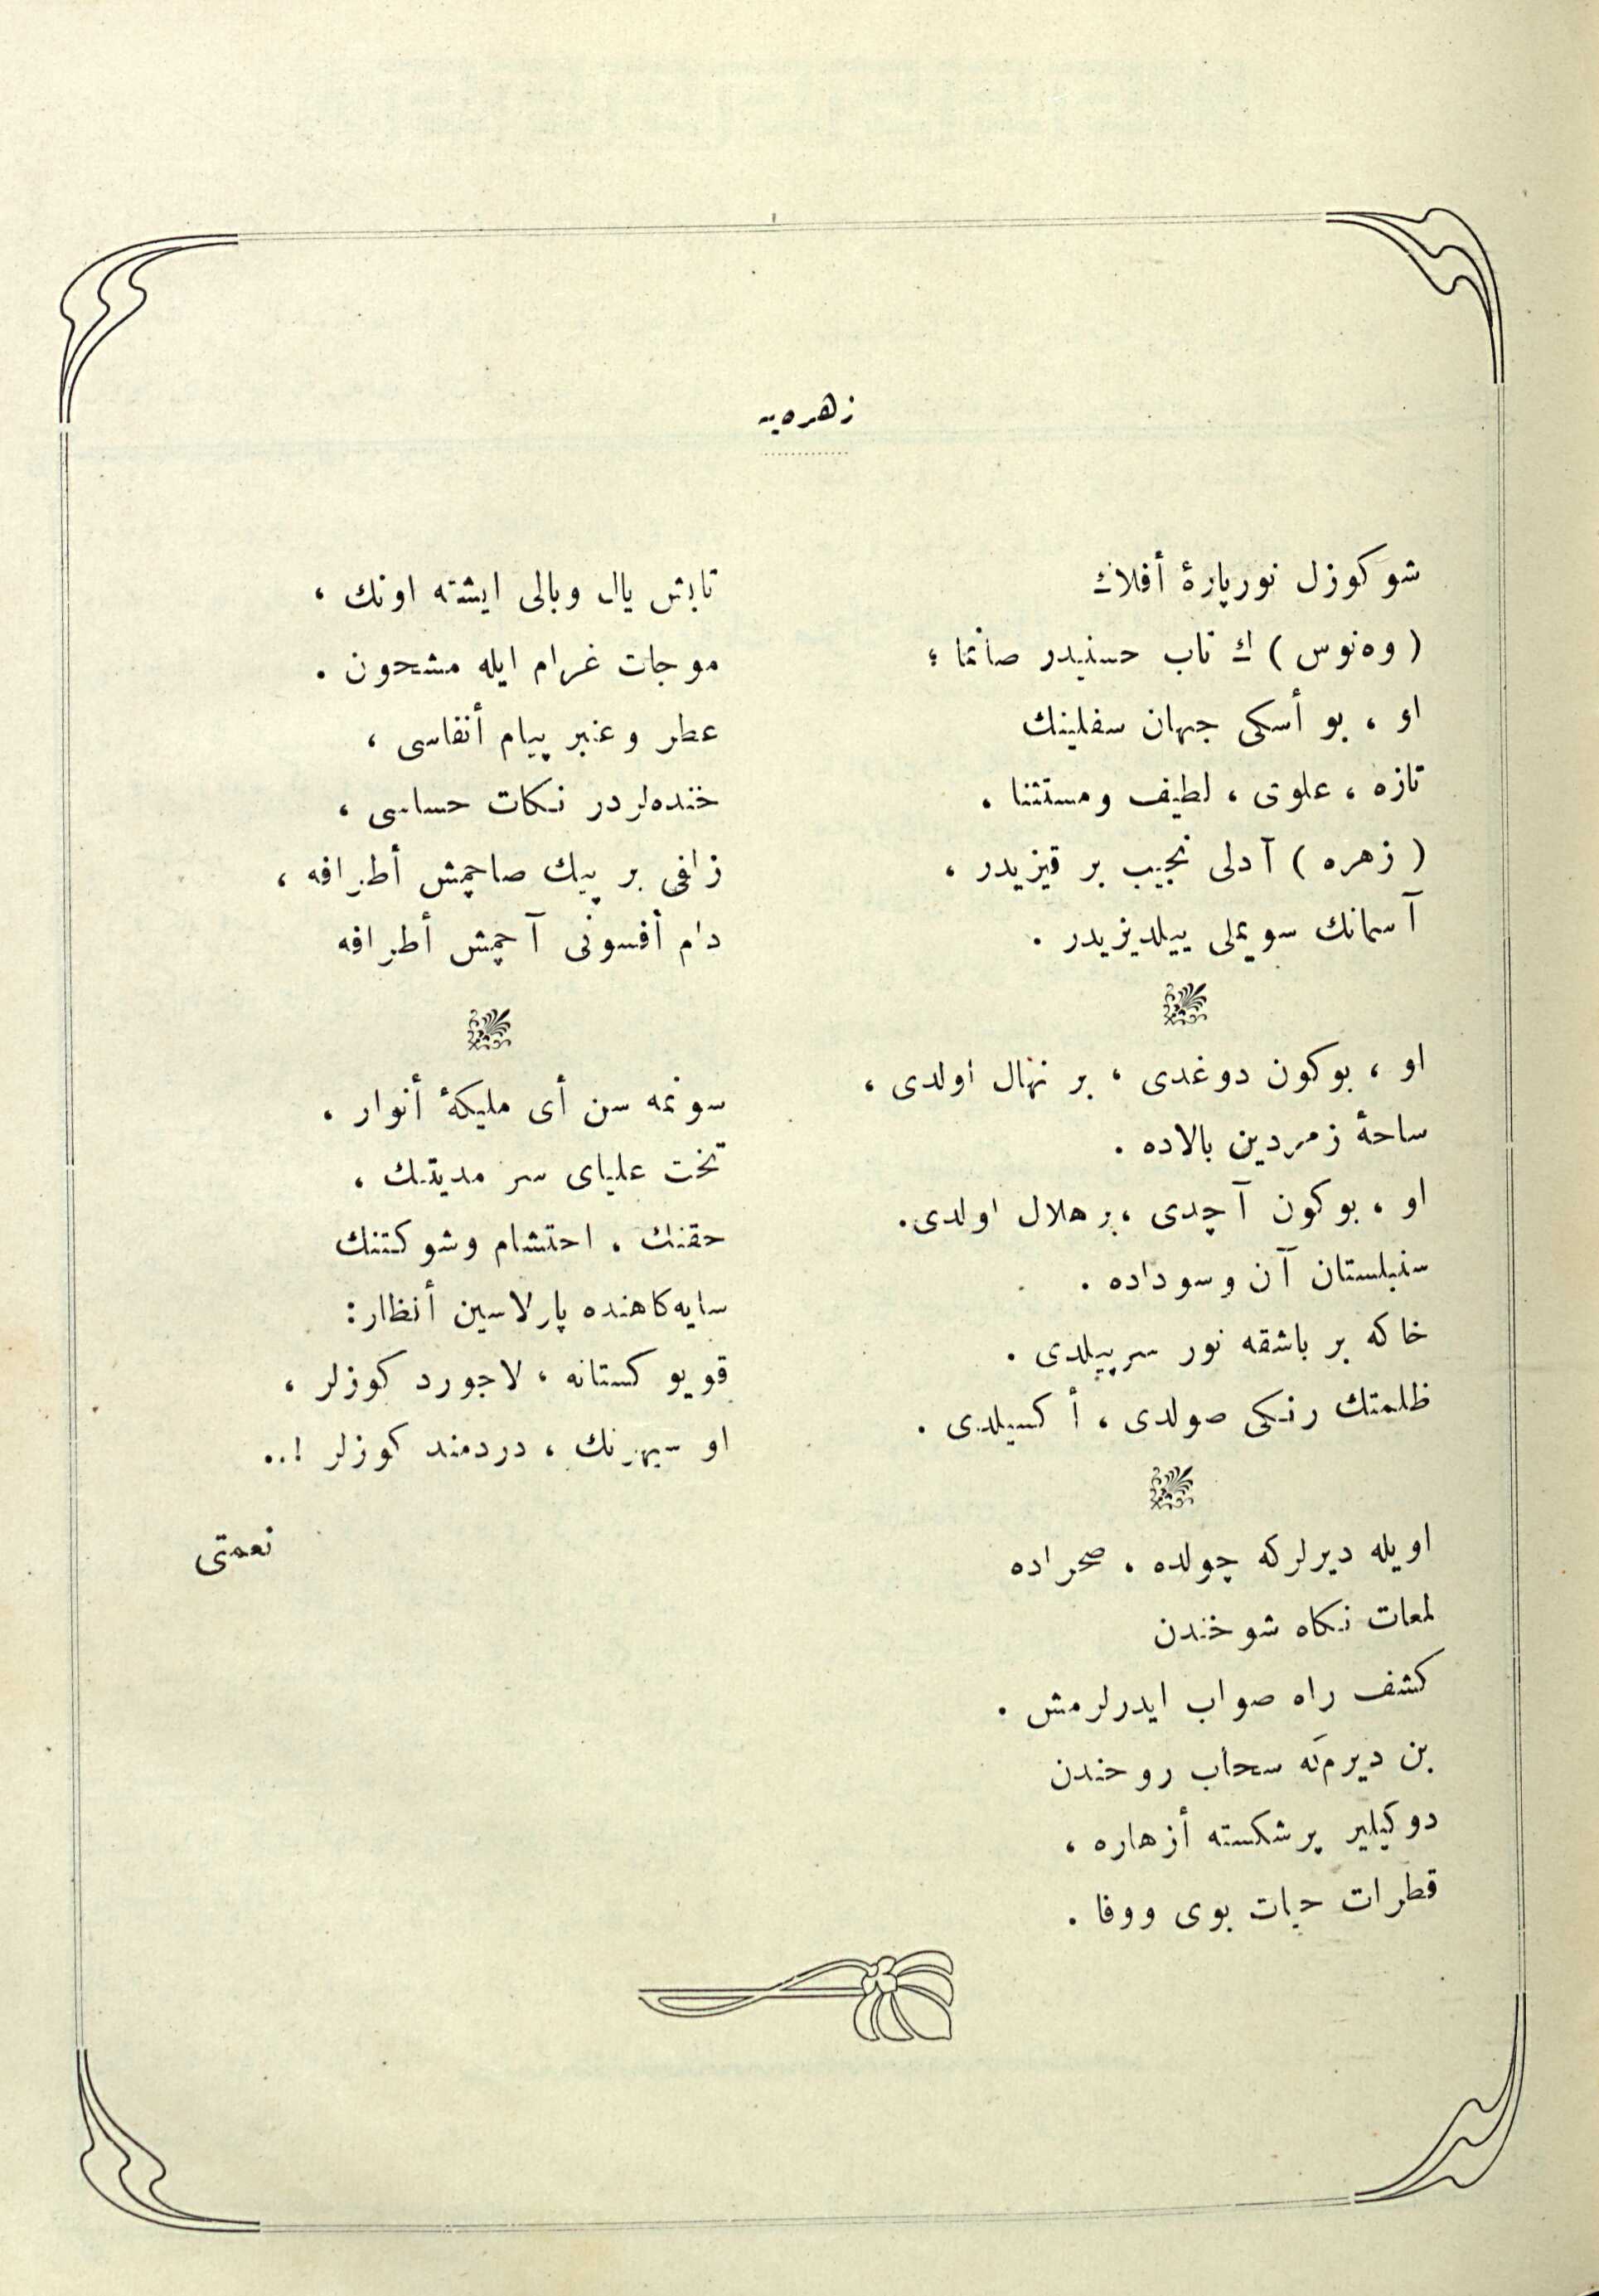 زهره‌یه
شو کوزل نورپارهٔ أفلاك
( وه‌نوس ) ك تاب حسنیدر صانما ؛
او ، بو أسکی جهان سفلینك
تازه ، علوی ، لطیف ومستثنا .
( زهره ) آدلی نجیب بر قیزیدر ،
آسمانك سویملی ییلدیزیدر .
او ، بوکون دوغدی ، بر نهال اولدی ،
ساحهٔ زمردین بالاده .
او ، بوکون آچدی ، بر هلال اولدی .
سنبلستان آن وسوداده .
خاکه بر باشقه نور سرپیلدی .
ظلمتك رنکی صولدی ، أکسیلدی .
اویله دیرلرکه چولده ، صحراده
لمعات نکاه شوخندن
کشف راه صواب ایدرلرمش .
بن دیرم‌که سحاب روحندن
دوکیلیر پرشکسته أزهاره ،
قطرات حیات بوی ووفا .
تابش یال وبالی ایشته اونك ،
موجات غرام ایله مشحون .
عطر وعنبر پیام أنفاسی ،
خنده‌لردر نکات حساسی ،
زلفی بر پیك صاچمش أطرافه ،
دام أفسونی آچمش أطرافه
سونمه سن أی ملیکهٔ أنوار ،
تخت علیای سرمدیتك ،
حقنك ، احتشام وشوکتنك
سایه‌کاهنده پارلاسین أنظار :
قویو کستانه ، لاجورد کوزلر ،
او سپهرنك ، دردمند کوزلر !..
نعمتی